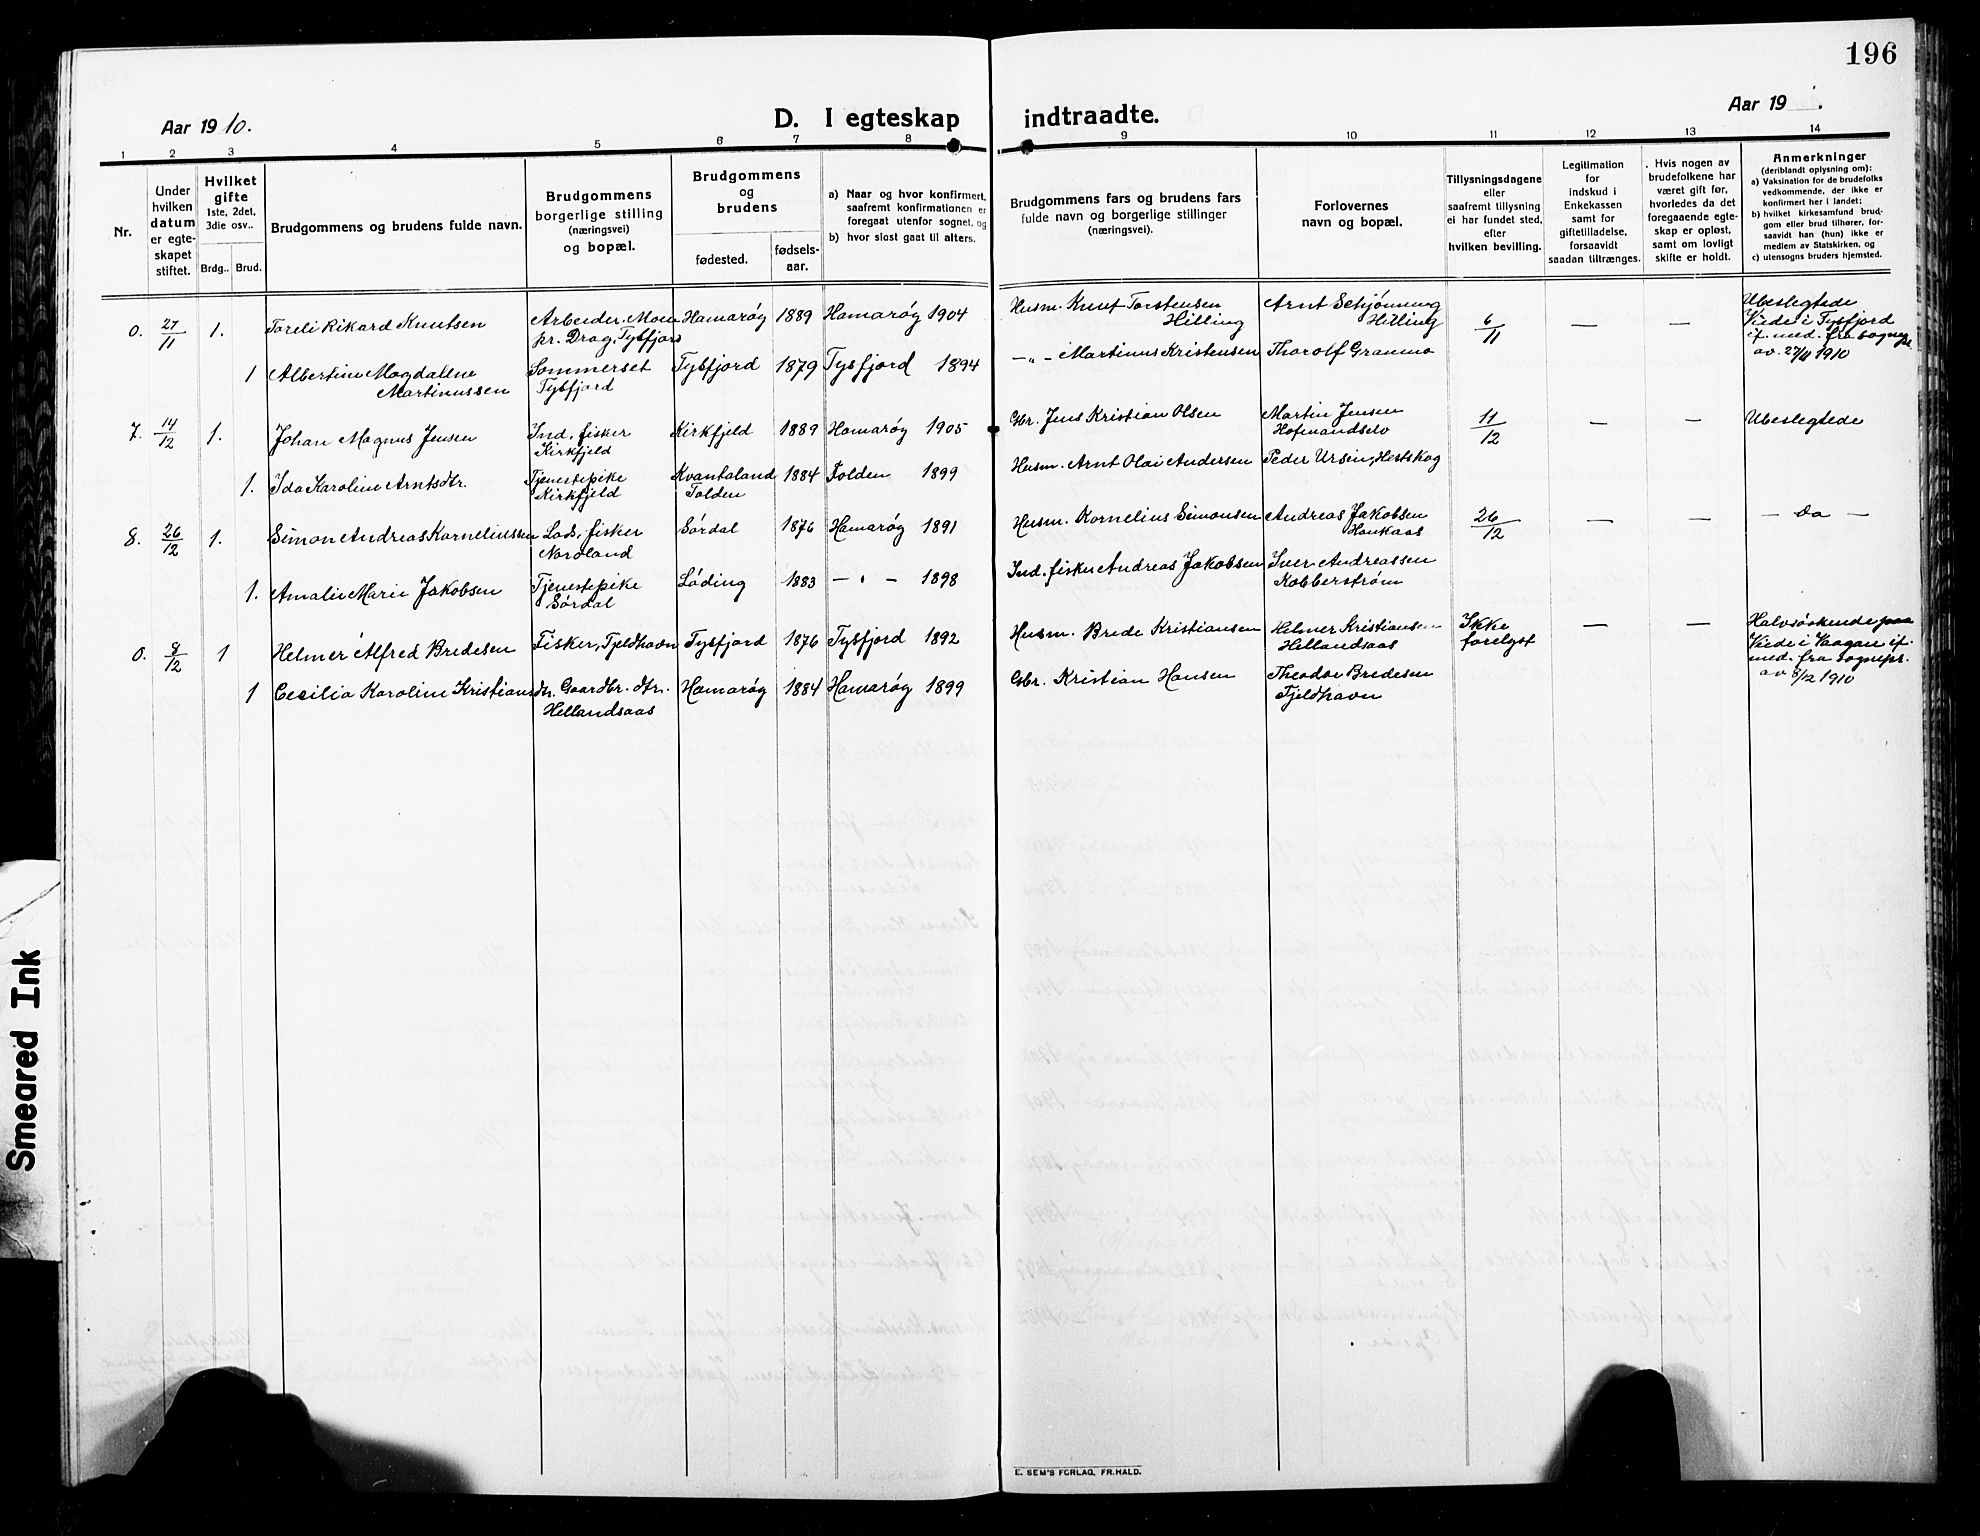 196
Aar 1910.
D. I egteskap indtraadte.
Aar 19 .
1 2 3 4 5 6 7 8 9 10 11 12 13 14
Nr.
Under hvilken datum er egteskapet stiftet.
Hvilket gifte 1ste, 2det, 3die osv..
Brdg.. Brud.
Brudgommens og brudens fulde navn.
Brudgommens borgerlige stilling (næringsvei) og bopæl.
Brudgommens og brudens
fødested. fødselsaar.
a) Naar og hvor konfirmert, saafremt konfirmationen er foregaat utenfor sognet, og
b) hvor sidst gaat til alters.
Brudgommens fars og brudens fars fulde navn og borgerlige stillinger (næringsvei).
Forlovernes navn og bopæl.
Tillysningsdagene eller saafremt tillysning ei har fundet sted, efter hvilken bevilling.
Legitimation for indskud i Enkekassen samt for giftetilladelse, forsaavidt saadan tiltrænges.
Hvis nogen av brudefolkene har været gift før, hvorledes da det foregaaende egteskap er opløst, samt om lovligt skifte er holdt.
Anmerkninger (deriblandt oplysning om):
a) Vaksination for de brudefolks vedkommende, der ikke er konfirmert her i landet;
b) hvilket kirkesamfund brudgom eller brud tilhører, forsaavidt han (hun) ikke er medlem av Statskirken, og
c) utensogns bruders hjemsted.
0. 27/11 1. Toreli Rikard Knutsen Arbeider, pr. Drag, Tysfjord Hamarøg 1889 Hamarøg 1904 Husm. Knut Torstensen Hilling Arnt Schjønning Hilling 6/11 — — Ubeslegtede Viede i Tysfjord if. med. fra sognepr. av 27/11 1910
1 Albertine Magdalene Martinussen Sommerset Tysfjord Tysfjord 1879 Tysfjord 1894 — „ — Martinus Kristensen Thorolf Granmo
7. 14/12 1. Johan Magnus Jensen Ind. fisker Kirkfjeld Kirkfjeld 1889 Hamarøg 1905 Gbr. Jens Kristian Olsen Martin Jensen 11/12 — — Ubeslegtede
1. Ida Karoline Arntsdtr. Tjenestepike Kirkfjeld Kvantoland Folden 1884 Folden 1899 Husm. Arnt Olai Andersen Peder Ursin, Hestskog
8. 26/12 1. Simon Andreas Korneliussen Lods, fisker Nordland Sørdal 1876 Hamarøg 1891 Husm. Kornelius Simonsen Andreas Jakobsen Haukaas 26/12 — — — Do —
1. Amalie Marie Jakobsen Tjenestepike Sørdal Løding 1883 — „ — 1898 Ind. fisker Andreas Jakobsen Iver Andreassen Kobberstrøm
0. 8/12 1 Helmer Alfred Bredesen Fisker, Fjeldhavn Tysfjord 1876 Tysfjord 1892 Husm. Brede Kristiansen Helmer Kristiansen Hellandsaas Ikke forelyst — — Halvsøskende paa Viede i Vaagan if. med. fra sognepr. av 8/12 1910
1 Cecilia Karoline Kristiansdtr. Gaardbr. dtr. Hellandsaas Hamarøg 1884 Hamarøg 1899 Gbr. Kristian Hansen Theodor Bredesen Fjeldhavn
Smeared Ink
E. SEM'S FORLAG, FR.HALD.